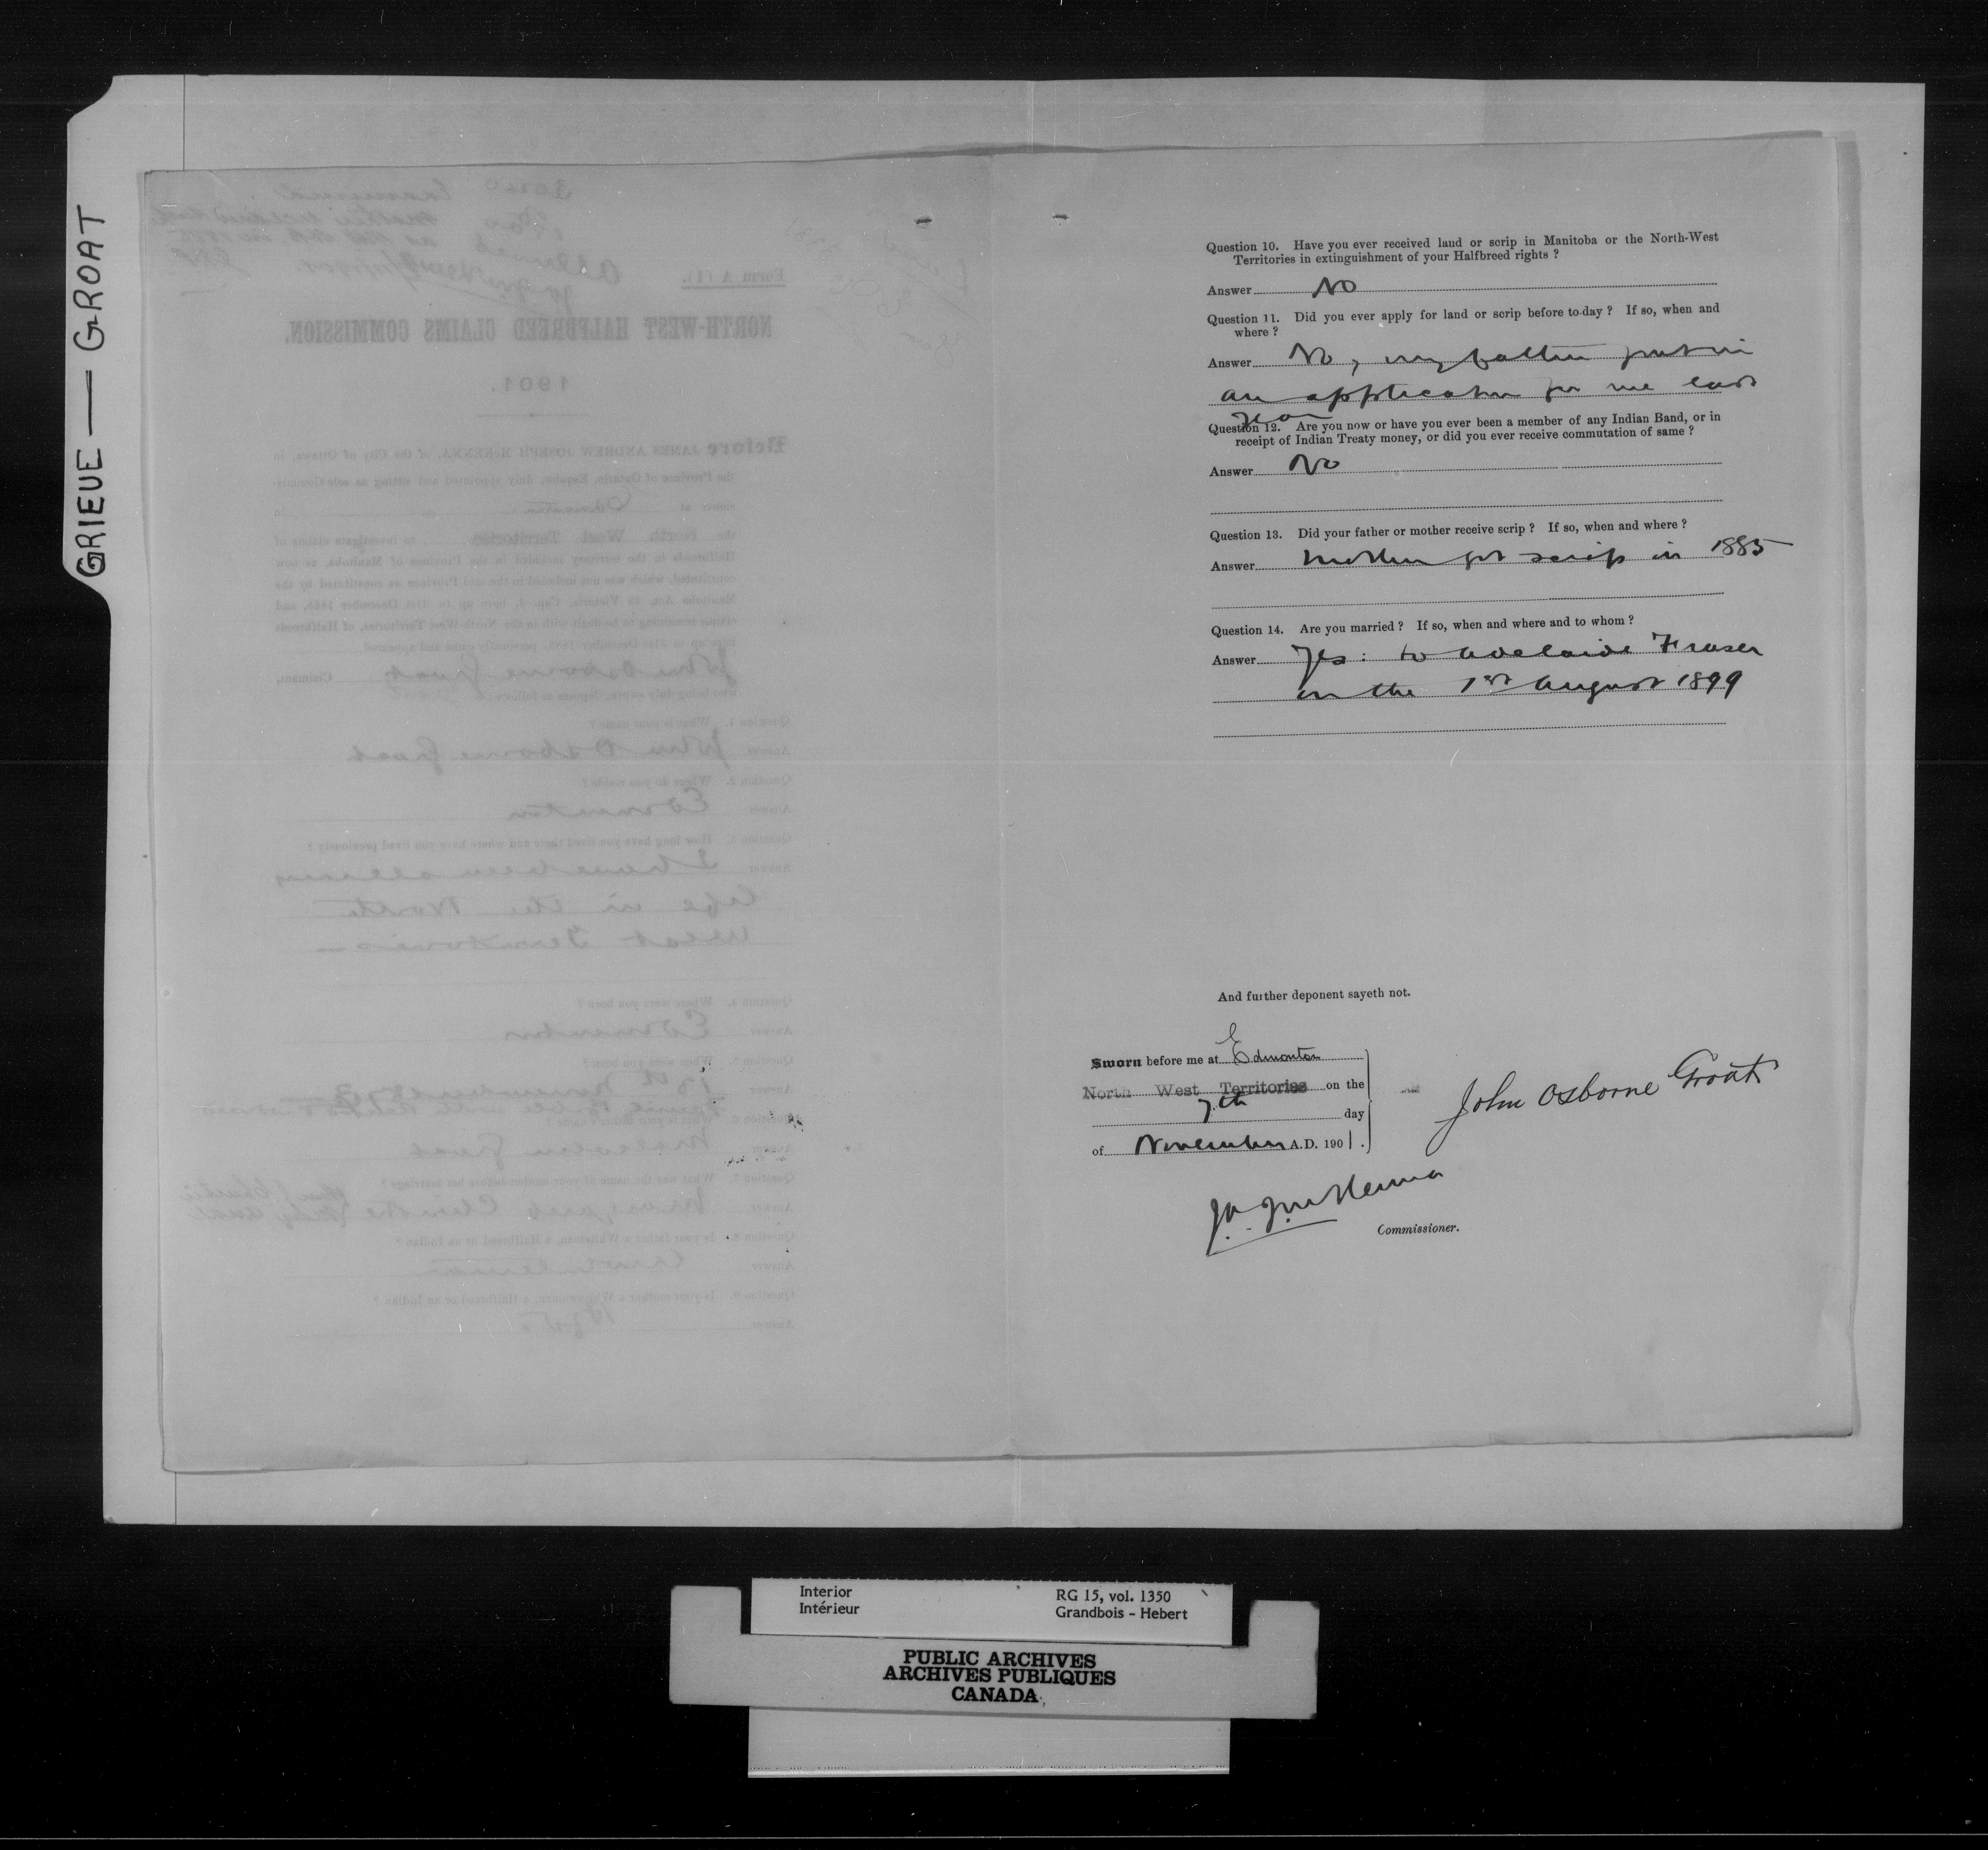 GRIEVE — GROAT
Form A (1).
NORTH-WEST HALFBREED CLAIMS COMMISSION.
1901.
Before JAMES ANDREW JOSEPH McKENNA, of the City of Ottawa, in
the Province of Ontario, Esquire, duly appointed and sitting as sole Commis-
sioner at Edmonton in
the North West Territories to investigate claims of
Halfbreeds in the territory included in the Province of Manitoba, as now
constituted, which was not included in the said Province as constituted by the
John Osborne Groat Claimant,
who being duly sworn, deposes as follows:
Question 1. What is your name?
Answer John Osborne Groat
Question 2. Where do you reside?
Answer Edmonton
Question 3. How long have you lived there and where have you lived previously?
Answer I have been all my
life in the North
West Territories —
Question 4. Where were you born?
Answer Edmonton
Question 5. When were you born?
Answer
Question 6. What is your father's name?
Answer Malcolm Groat
Question 7. What was the name of your mother before her marriage?
Answer Margaret Christie
Question 8. Is your father a Whiteman, a Halfbreed or an Indian?
Answer
Question 9. Is your mother a Whitewoman, a Halfbreed or an Indian?
Answer
Question 10. Have you ever received land or scrip in Manitoba or the North-West
Territories in extinguishment of your Halfbreed rights ?
Answer No
Question 11. Did you ever apply for land or scrip before to-day ? If so, when and
where ?
Answer No, my father put in
an application for me last
year
Question 12. Are you now or have you ever been a member of any Indian Band, or in
receipt of Indian Treaty money, or did you ever receive commutation of same ?
Answer No
Question 13. Did your father or mother receive scrip ? If so, when and where ?
Answer Mother got scrip in 1885
Question 14. Are you married ? If so, when and where and to whom ?
Answer Yes: to Adelaide Fraser
on the 1st August 1899
And further deponent sayeth not.
Sworn before me at Edmonton
North West Territories on the
7th day
of November A.D. 1901.
John Osborne Groat
J.A.J. McKenna
Commissioner.
Interior RG 15, vol. 1350
Intérieur Grandbois - Hebert
PUBLIC ARCHIVES
ARCHIVES PUBLIQUES
CANADA